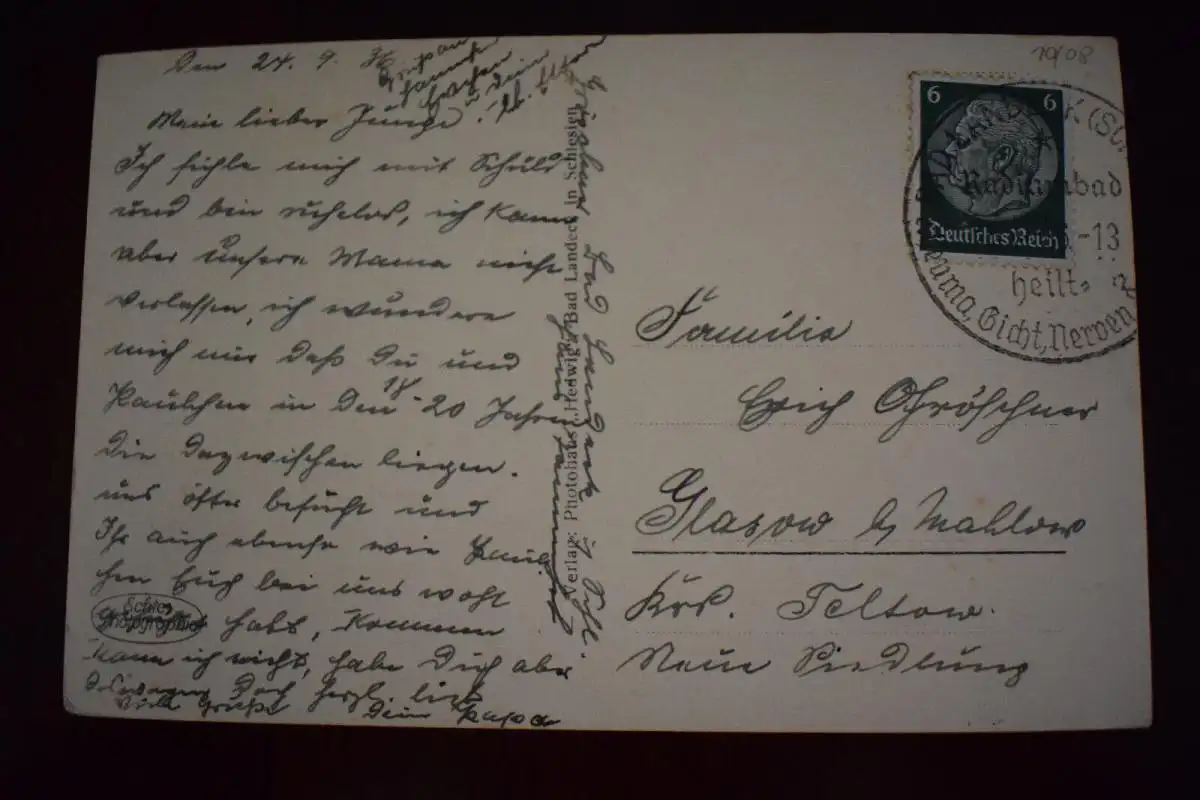 Den 24. 9. 36
Mein lieber Junge!
Ich fühle mich mit Schuld
und bin ruhelos, ich kann
aber unsere Mama nicht
verlassen, ich wundere
mich nur daß Du und
Paulchen in den 18-20 Jahren
die dazwischen liegen.
uns öfter besucht und
Ihr auch ebenso wie
chen Euch bei uns wohl
habt, Kommen
kann ich nicht, habe Dich aber
deswegen doch herzl. lieb
Viele Grüße Dein Papa
Bad Landeck i/ Schl.
Verlag: Photohaus „Hedwig“, Bad Landeck in Schlesien
Schles.
19/08
6 6
Deutsches Reich
Radiumbad
-13
heilt
Rheuma, Gicht, Nerven
Familie
Erich Gröschner
Glasow b/ Mahlow
Krs. Teltow.
Neue Siedlung